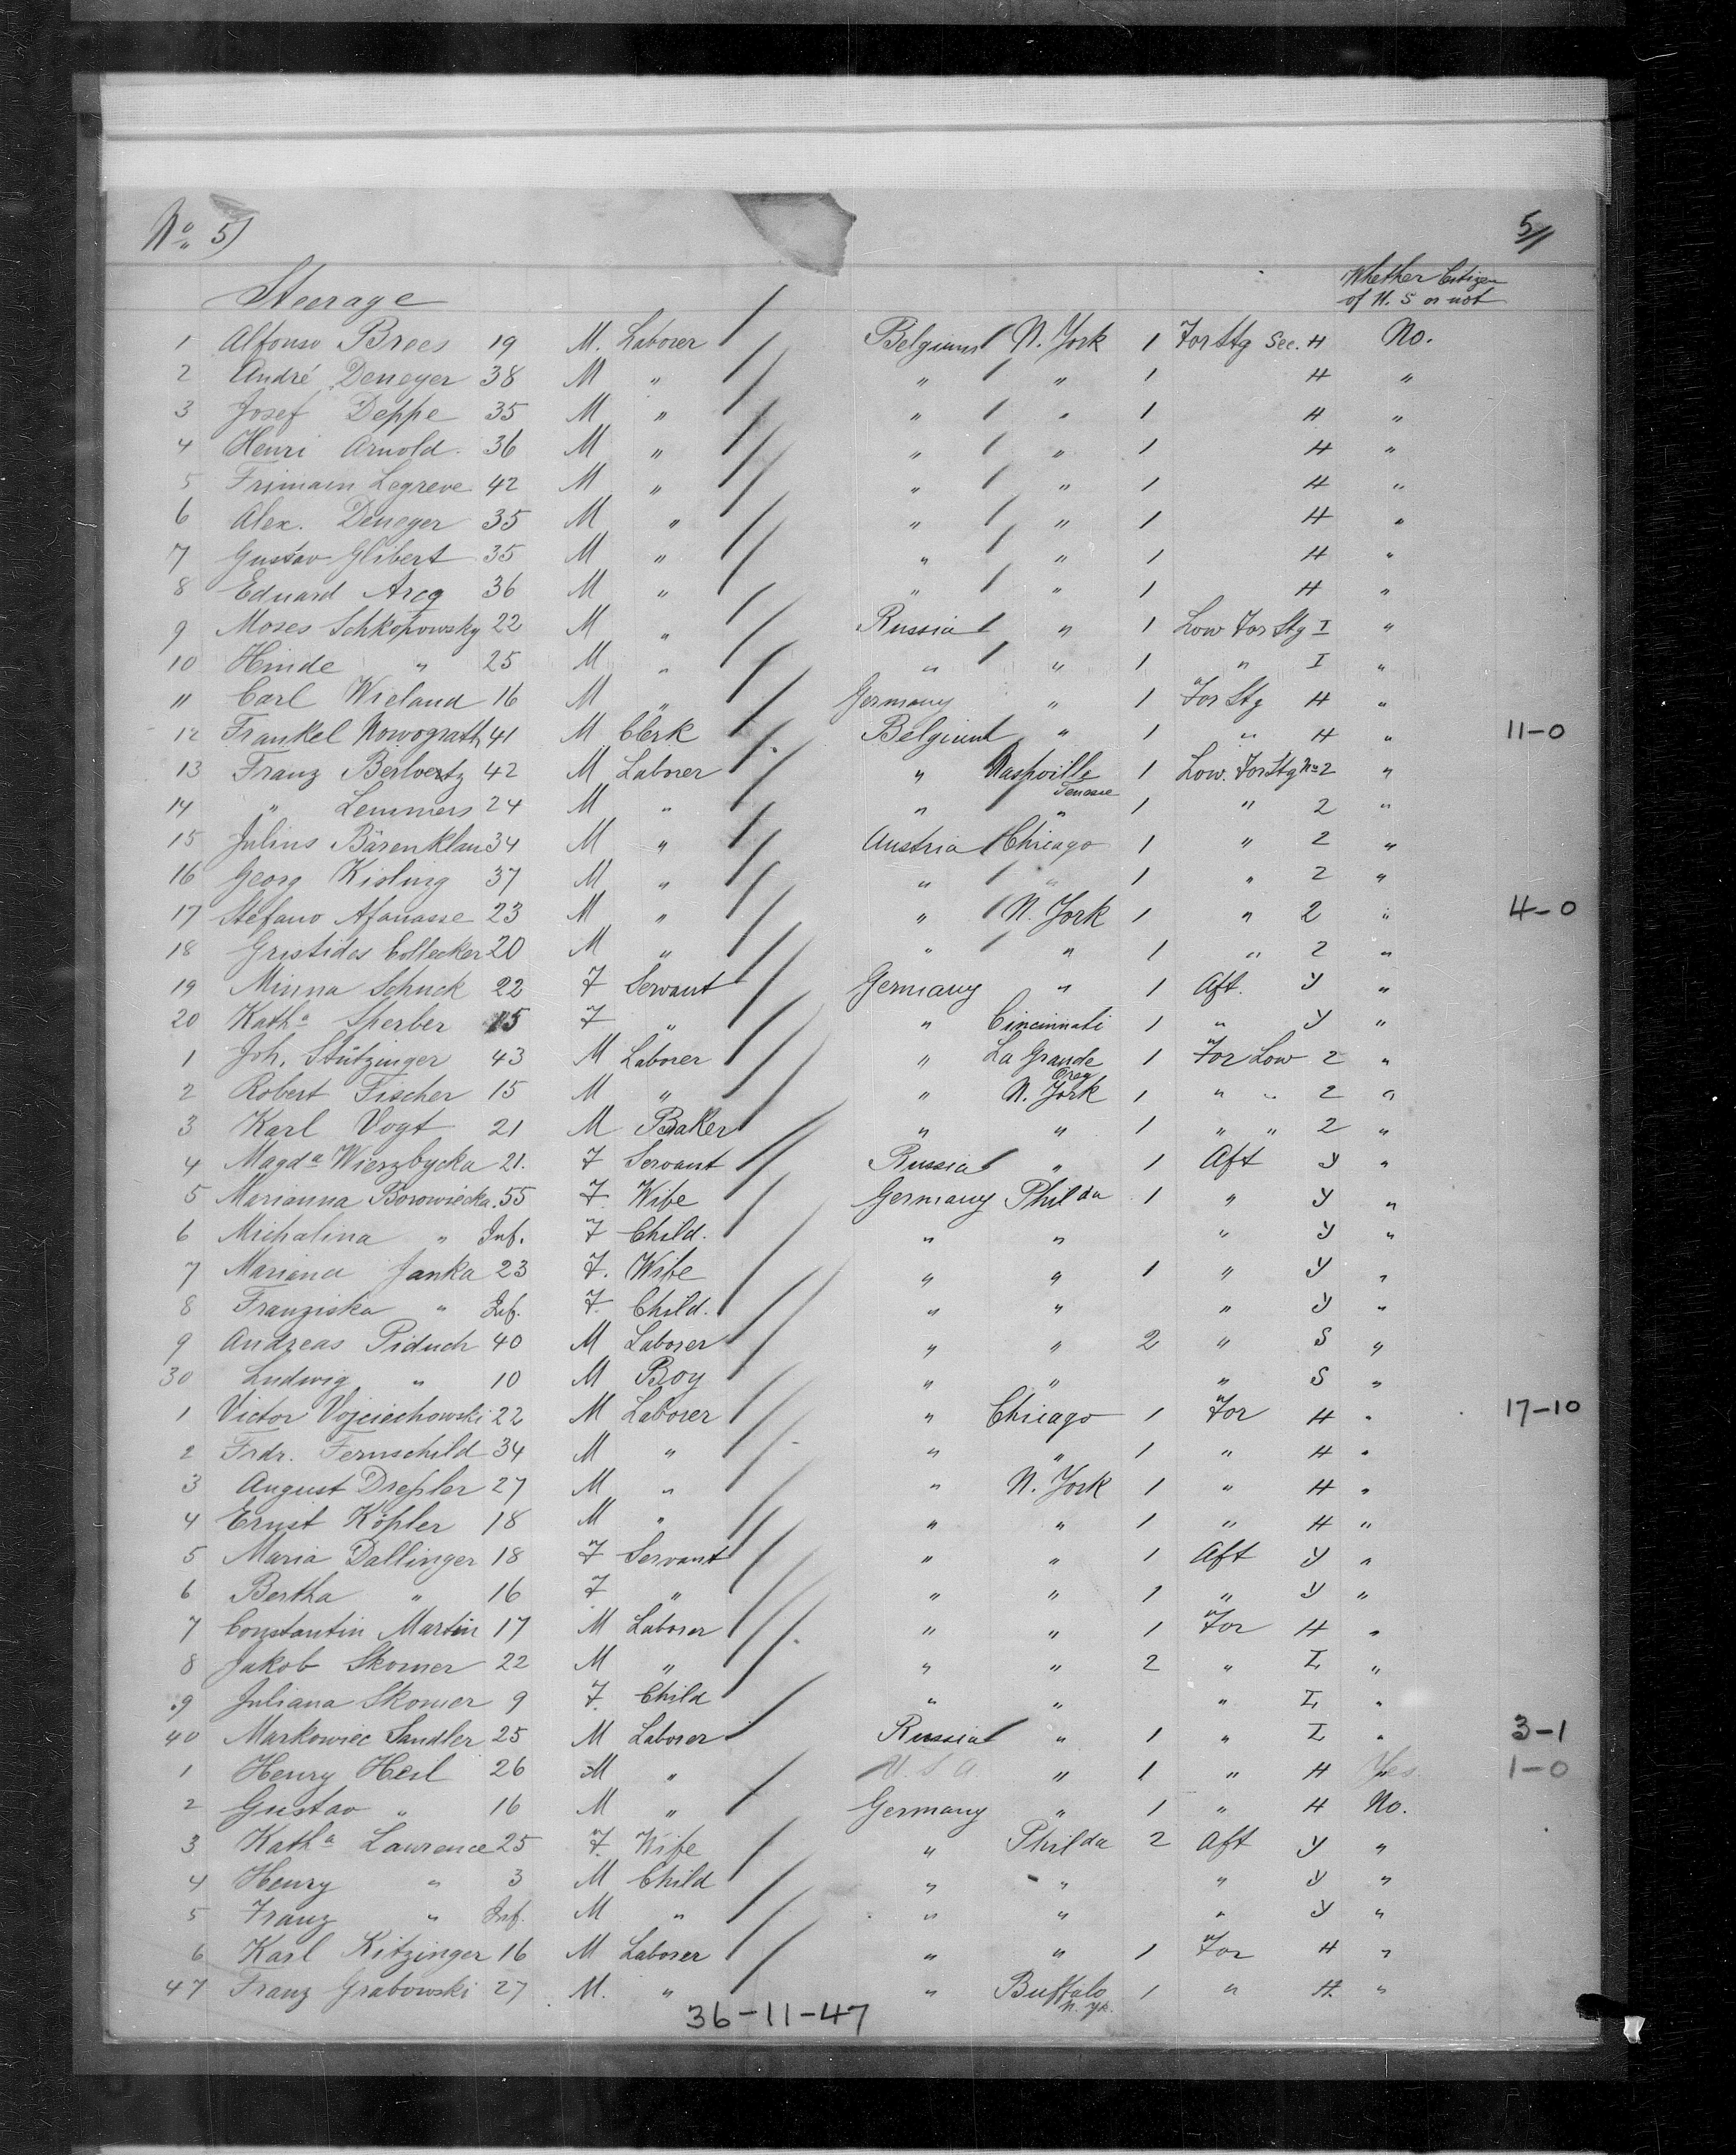 No. 5) 5//
Whether Citizen
Steerage of U. S or not
1 Alfonso Broes 19 M. Laborer Belgium N. York 1 For Stg Sec. H No.
2 André Deneyer 38 M " " " 1 H "
3 Josef Deppe 35 M " " " 1 H "
4 Henri Arnold. 36 M " " " 1 H "
5 Legreve 42 M " " " 1 H "
6 Alex. Deneyer 35 M " " " 1 H "
7 Gustav Glibert 35 M " " " 1 H "
8 Eduard Arcq 36 M " " " 1 H "
9 Moses Schkopowsky 22 M " Russia " 1 Low For Stg I "
10 Hinde " 25 M " " " 1 " I "
" Carl Wieland 16 M " Germany " 1 For Stg H "
12 Frankel Nowograth 41 M Clerk Belgium " 1 " H " 11-0
13 Franz 42 M Laborer " Nashville 1 Low. For Stg No 2 "
Tenesse
14 " Lemmers 24 M " " " 1 " 2 "
15 Julius Bärenklau 34 M " Austria Chicago 1 " 2 "
16 Georg Kisling 37 M " " " 1 " 2 "
17 Stefano Afanasse 23 M " " N. York 1 " 2 " 4-0
18 Gristides Collecker 20 M " " " 1 " 2 "
19 Minna Schuck 22 F Servant Germany " 1 Aft. Y "
20 Katha Sperber 15 F " " Cincinnati 1 " Y "
1 Joh. Stützinger 43 M Laborer " La Grande 1 For Low 2 "
Oreg
2 Robert Fischer 15 M " " N. York 1 " " 2 "
3 Karl Vogt 21 M Baker " " 1 " " 2 "
4 Magda Wierzbycka 21. F Servant Russia " 1 Aft Y "
5 Marianna Borowiecka. 55 F Wife Germany Philda 1 " Y "
6 Michalina " Inf. F Child. " " " Y "
7 Mariana Janka 23 F. Wife " " 1 " Y "
8 Franziska " Inf. F. Child. " " " Y "
9 Andreas Piduch 40 M Laborer " " 2 " S "
30 Ludwig " 10 M Boy " " " S "
1 Victor Vojciechowski 22 M Laborer " Chicago 1 For H " 17-10
2 Frdr. Fernschild 34 M " " " 1 " H "
3 August Dreßler 27 M " " N. York 1 " H "
4 Ernst Kößler 18 M " " " 1 " H "
5 Maria Dallinger 18 F Servant " " 1 Aft Y "
6 Bertha " 16 F " " " 1 " Y "
7 Constantin Martin 17 M Laborer " " 1 For H "
8 Jakob Skomer 22 M " " " 2 " I "
9 Juliana Skomer 9 F. Child " " " I "
40 Markowiec Sandler 25 M Laborer Russia " 1 " I " 3-1
1 Henry Heil 26 M " U. S A. " 1 " H Yes. 1-0
2 Gustav " 16 M " Germany " 1 " H No.
3 Katha Laurence 25 F. Wife " Philda 2 Aft Y "
4 Henry " 3 M Child " " " Y "
5 Franz " Inf. M " " " " Y "
6 Karl Kitzinger 16 M Laborer " " 1 For H "
47 Franz Grabowski 27 M. " " Buffalo 1 " H. "
N. Yk.
36-11-47